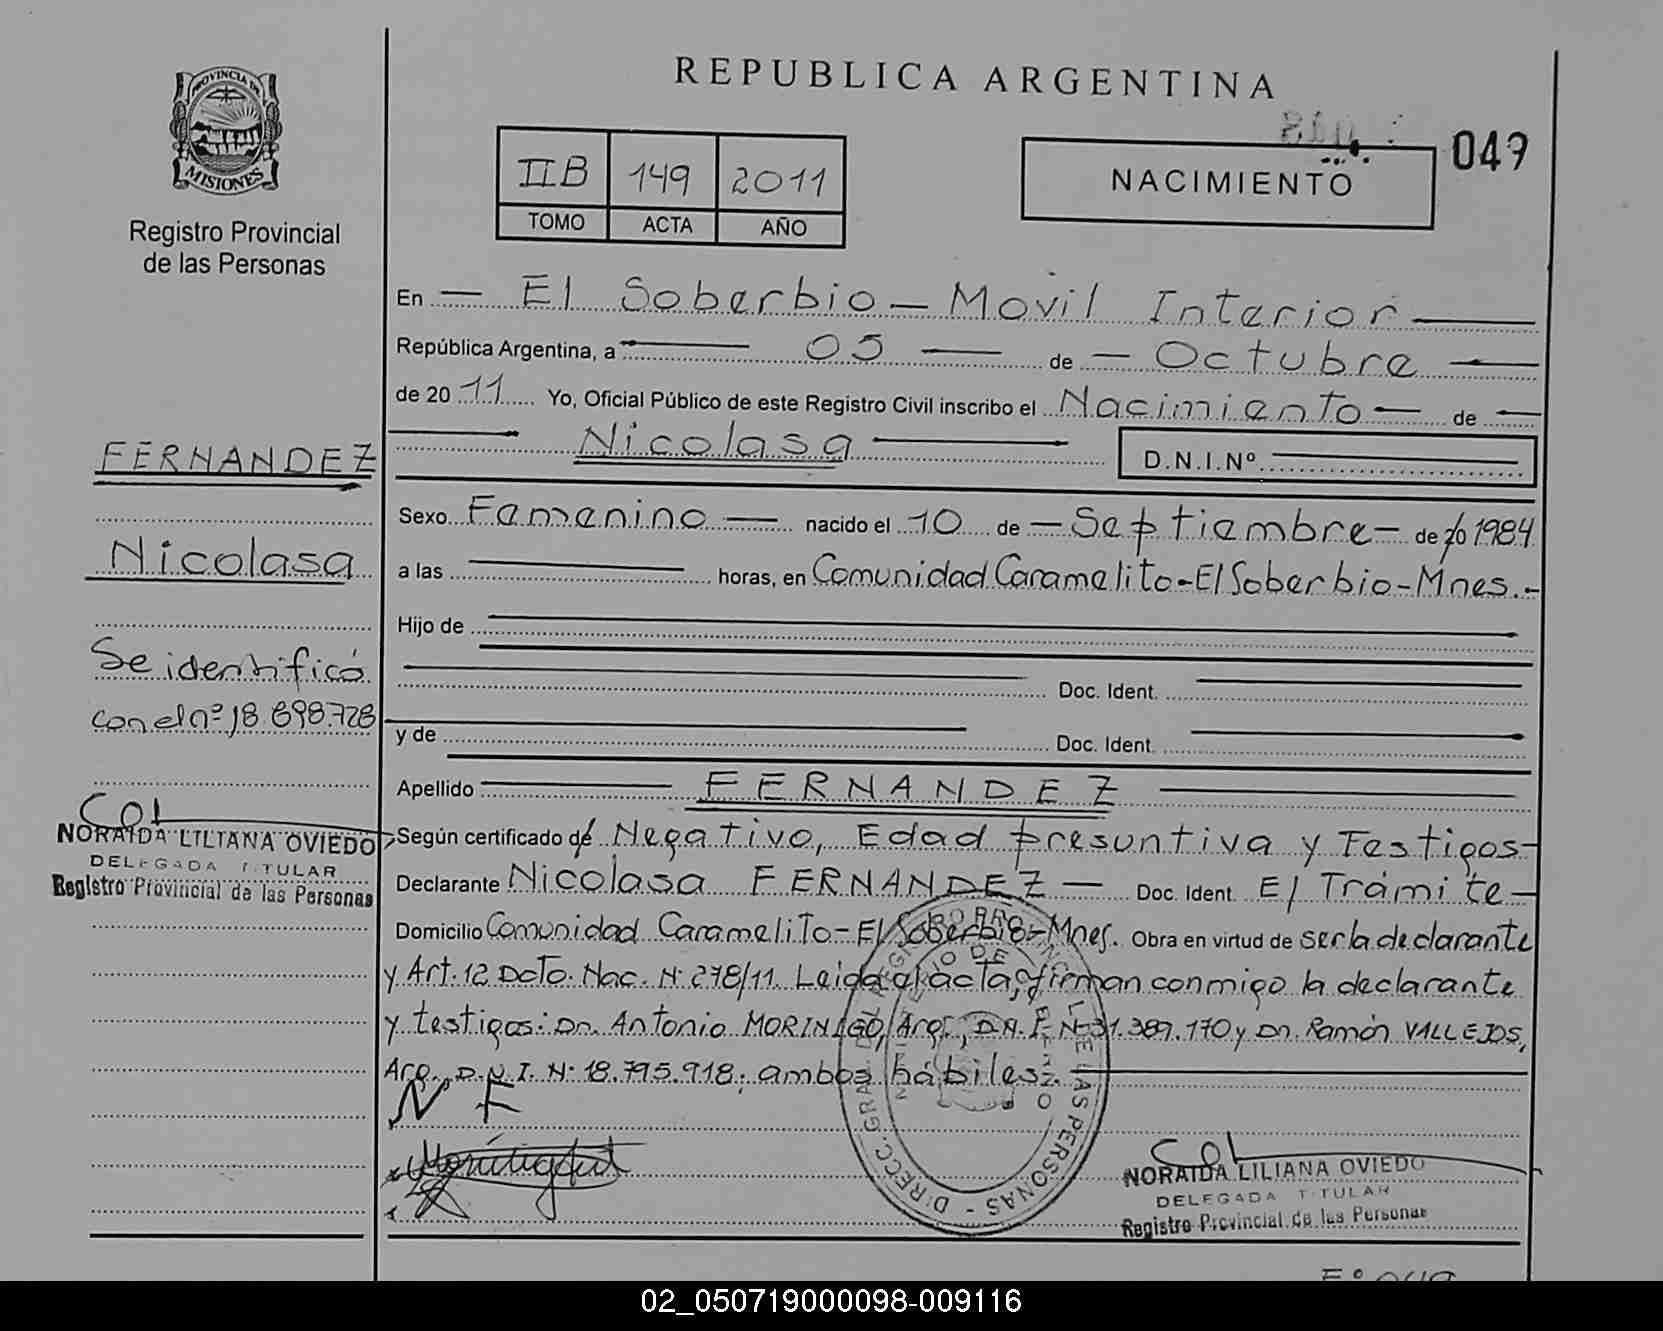 REPUBLICA ARGENTINA
PROVINCIA DE
MISIONES
Registro Provincial
de las Personas
IIB 149 2011
TOMO ACTA AÑO
NACIMIENTO
049
En — El Soberbio — Movil Interior —
República Argentina, a — 05 — de — Octubre —
de 20 11 Yo, Oficial Público de este Registro Civil inscribo el Nacimiento — de —
— Nicolasa —
D.N.I.Nº
FERNANDEZ
Nicolasa
Se identificó
con el nº 18.898.728
Sexo Femenino — nacido el 10 de — Septiembre — de 1984
a las — horas, en Comunidad Caramelito - El Soberbio - Mnes. -
Hijo de
Doc. Ident.
y de Doc. Ident.
Apellido — FERNANDEZ —
Según certificado de Negativo, Edad presuntiva y Testigos -
Declarante Nicolasa FERNANDEZ — Doc. Ident. E/ Trámite -
Domicilio Comunidad Caramelito - El Soberbio - Mnes. Obra en virtud de ser la declarante
y Art. 12 Dcto. Nac. Nº 278/11. Leida el acta, firman conmigo la declarante
y testigos: Dn. Antonio MORINIGO, Arg., D.N.I. Nº 31.389.170 y Dn. Ramón VALLEJOS,
Arg., D.N.I. Nº 18.795.918; ambos hábiles. —
N F
NORAIDA LILIANA OVIEDO
DELEGADA TITULAR
Registro Provincial de las Personas
NORAIDA LILIANA OVIEDO
DELEGADA TITULAR
Registro Provincial de las Personas
02_050719000098-009116